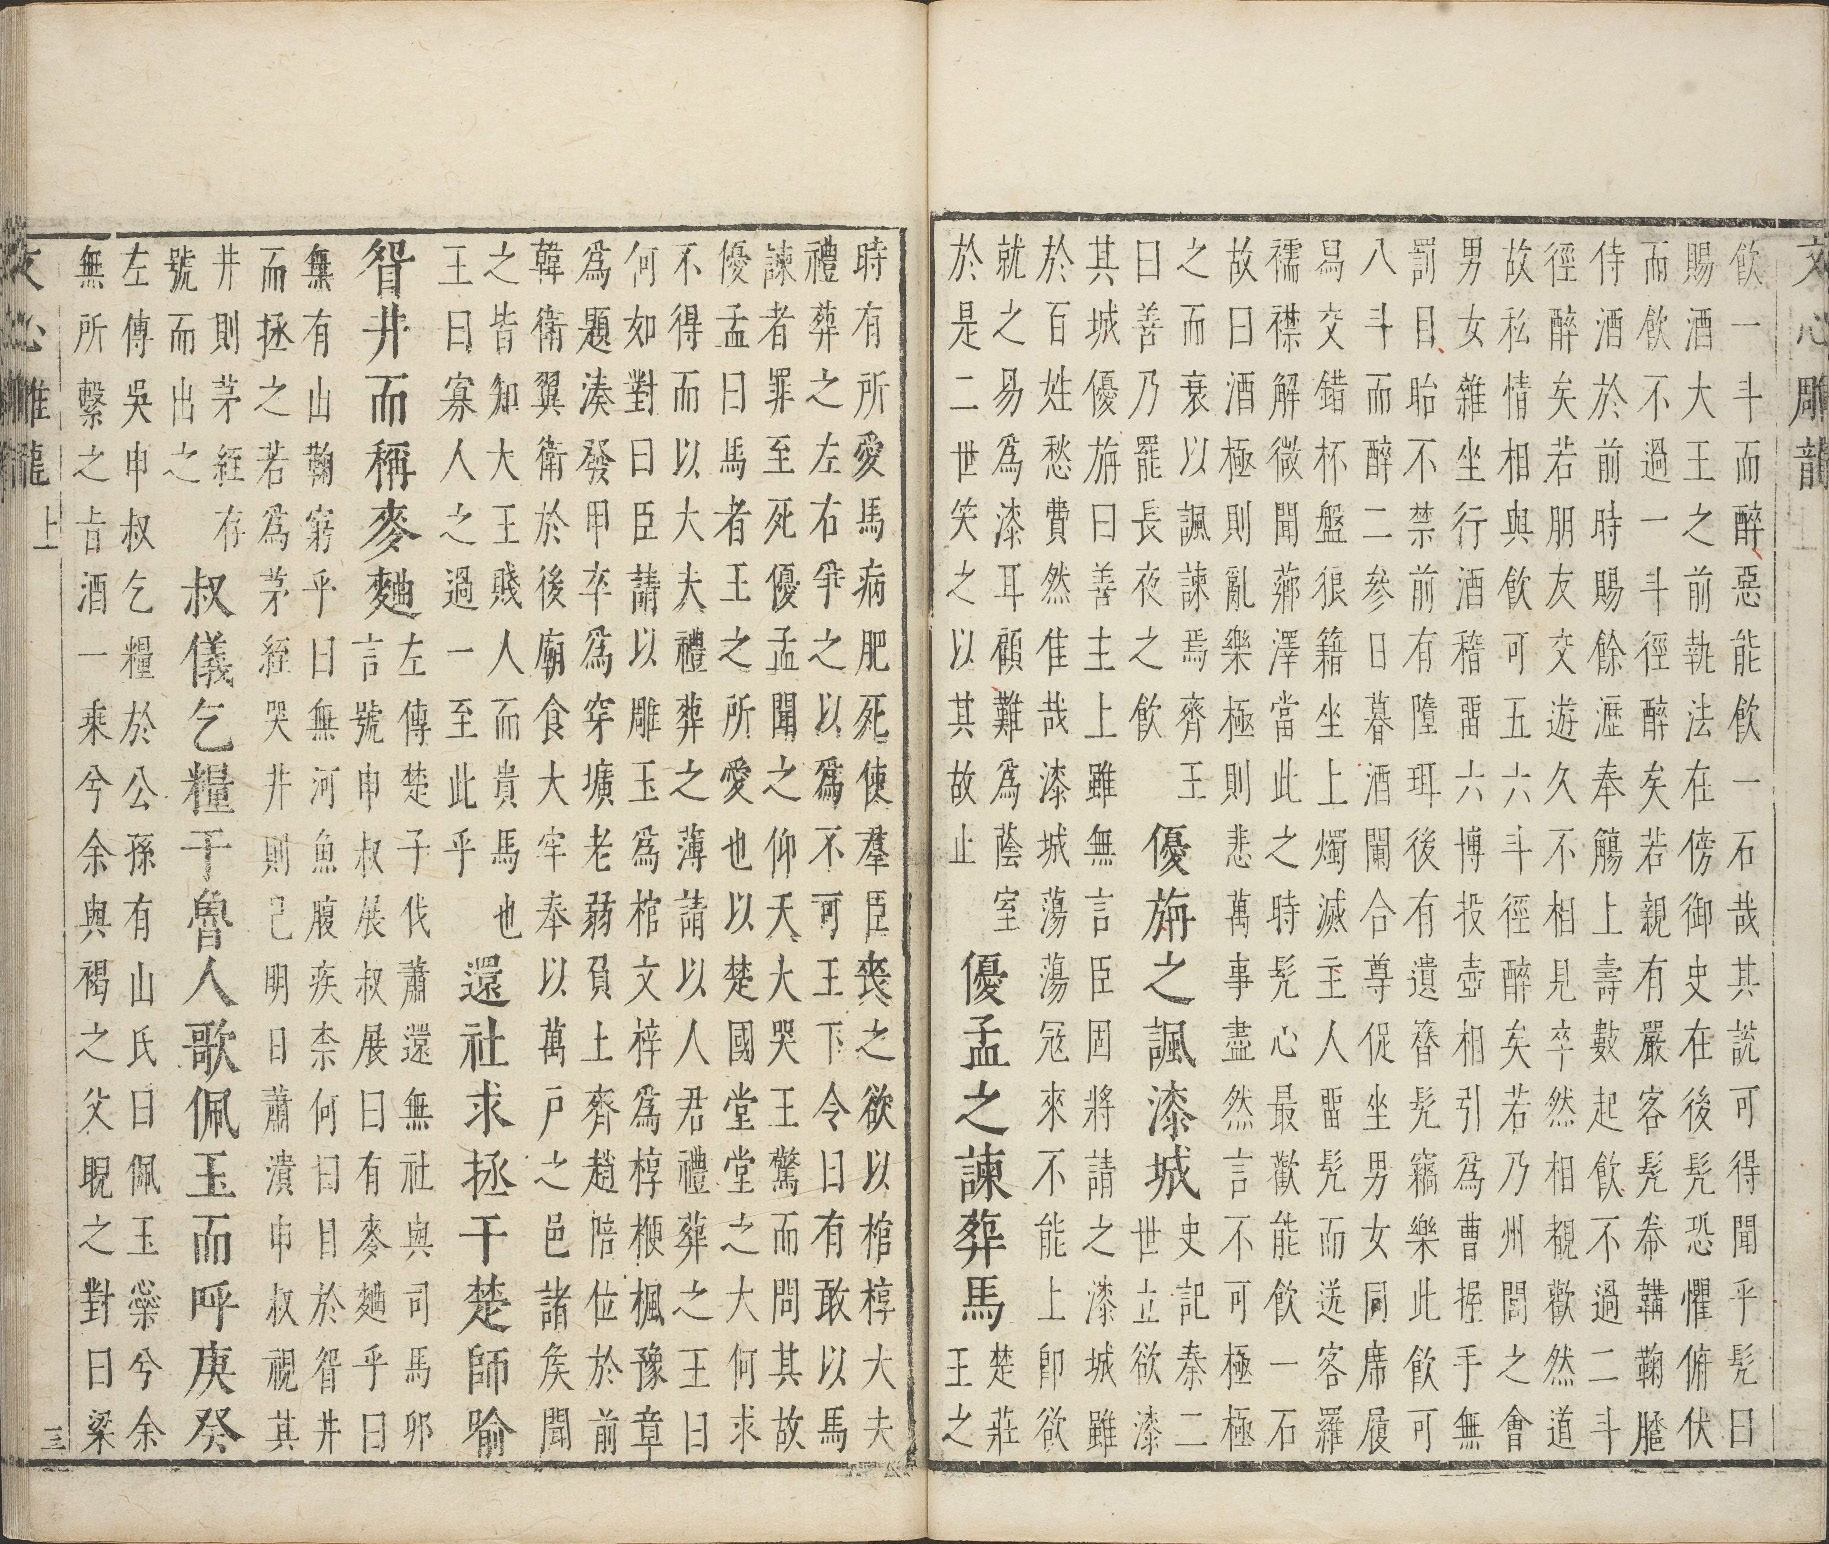 文心雕龍
飲一斗而醉惡能飲一石哉其說可得聞乎髡曰
賜酒大王之前執法在傍御史在後髡恐懼俯伏
而飲不過一斗徑醉矣若親有嚴客髡帣韝鞠䠆
侍酒於前時賜餘瀝奉觴上壽數起飲不過二斗
徑醉矣若朋友交遊久不相見卒然相覩歡然道
故私情相與飲可五六斗徑醉矣若乃州閭之會
男女雜坐行酒稽畱六博投壺相引爲曹握手無
罰目眙不禁前有墮珥後有遺簪髡竊樂此飲可
八斗而醉二參日暮酒闌合尊促坐男女同席履
舄交錯杯盤狼籍坐上燭滅主人畱髡而送客羅
襦襟解微聞薌澤當此之時髡心最歡能飲一石
故曰酒極則亂樂極則悲萬事盡然言不可極極
之而衰以諷諫焉齊王
曰善乃罷長夜之飲
優旃之諷漆城
史記秦二
世立欲漆
其城優旃曰善主上雖無言臣固將請之漆城雖
於百姓愁費然隹哉漆城蕩蕩冦來不能上卽欲
就之易爲漆耳顧難爲蔭室
於是二世笑之以其故止
優孟之諫葬馬
楚莊
王之
時有所愛馬病肥死使羣臣喪之欲以棺椁大夫
禮葬之左右爭之以爲不可王下令曰有敢以馬
諫者罪至死優孟聞之仰天大哭王驚而問其故
優孟曰馬者王之所愛也以楚國堂堂之大何求
不得而以大夫禮葬之薄請以人君禮葬之王曰
何如對曰臣請以雕玉爲棺文梓爲椁楩楓豫章
爲題湊發甲卒爲穿壙老弱負土齊趙陪位於前
韓衛翼衛於後廟食大牢奉以萬戶之邑諸矦聞
之皆知大王賤人而貴馬也
王曰寡人之過一至此乎
還社求拯于楚師喻
眢井而稱麥麯
左傳楚子伐蕭還無社與司馬卯
言號申叔展叔展曰有麥麯乎曰
無有山鞠窮乎曰無河魚腹疾柰何曰目於眢井
而拯之若爲茅絰哭井則己明日蕭潰申叔視其
井則茅絰存
號而出之
叔儀乞糧于魯人歌佩玉而呼庚癸
左傳吳申叔乞糧於公孫有山氏曰佩玉橤兮余
無所繫之旨酒一乘兮余與褐之父睨之對曰梁
文心雕龍
上
三